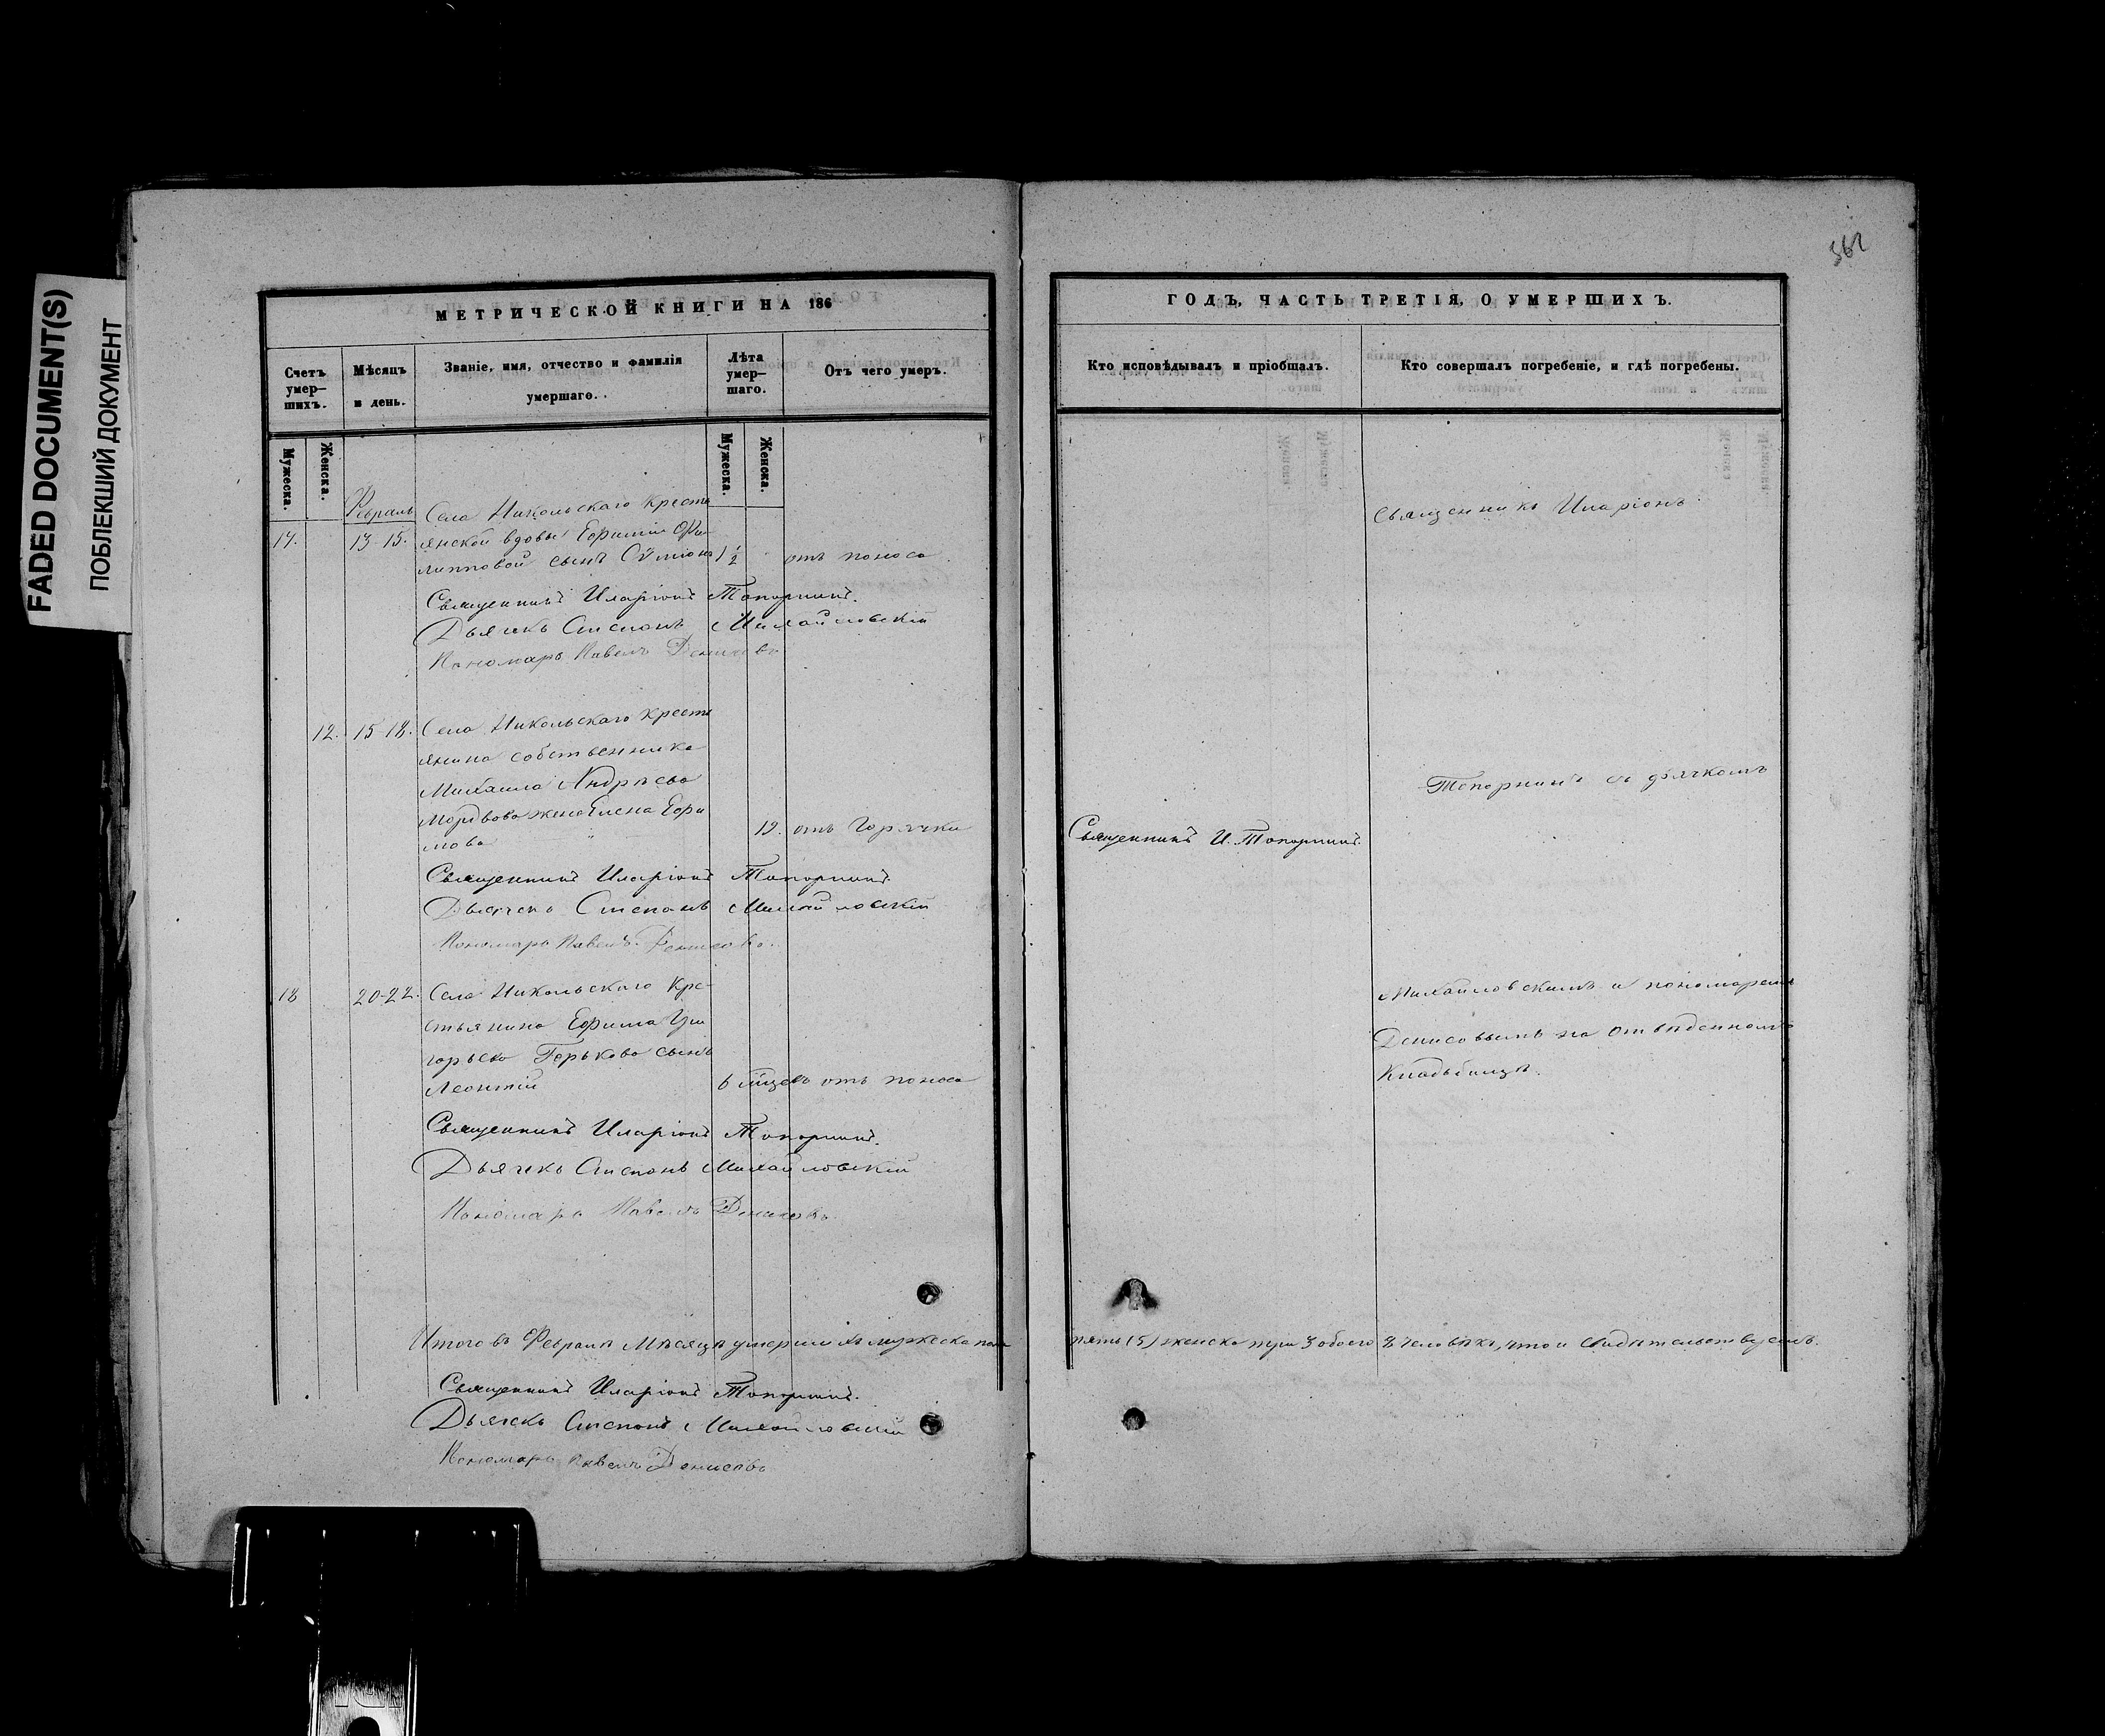 FADED DOCUMENT(S)
ПОБЛЕКШИЙ ДОКУМЕНТ
МЕТРИЧЕСКОЙ КНИГИ НА 186
Счетъ умер-шихъ.
Мѣсяцъ и день.
Званіе, имя, отчество и фамилія умершаго.
Лѣта умер-шаго.
Отъ чего умеръ.
Мужеска.
Женска.
Мужеска.
Женска.
Февраль
Села Никольскаго кресть
17. 13-15. янской вдовы Ефиміи Фи-
липповой сынъ Сѵмеонъ 1 1/2 отъ поноса
Священникъ Иларіонъ Топорнинъ.
Дьячекъ Стефанъ Михайловскій
Пономарь Павелъ Денисовъ
12. 15-18. Села Никольскаго кресть
янина собственника
Михаила Андрѣева
Мордвова жена Елена Ефи
мова 19. отъ горячки
Священникъ Иларіонъ Топорнинъ.
Дьячекъ Степанъ Михайловскій
Пономарь Павелъ Денисовъ.
18 20-22. Села Никольскаго Кре-
стьянина Ефима Гри
горьева Горькова сынъ
Леонтій 6 мѣсяц. отъ поноса
Священникъ Иларіонъ Топорнинъ.
Дьячекъ Степанъ Михайловскій
Пономарь Павелъ Денисовъ.
Итого въ Февралѣ Мѣсяцѣ умерших мужеска пола
Священникъ Иларіонъ Топорнинъ.
Дьячекъ Степанъ Михайловскій
Пономарь Павелъ Денисовъ
562
ГОДЪ, ЧАСТЬ ТРЕТІЯ, О УМЕРШИХЪ.
Кто исповѣдывалъ и пріобщалъ.
Кто совершалъ погребеніе, и гдѣ погребены.
Священникъ Иларіонъ
Топорнинъ съ дьячкомъ
Священникъ И. Топорнинъ.
Михайловскимъ и пономаремъ
Денисовымъ на отведенномъ
Кладбищѣ.
пять (5) женска три 3 обоего 8 человѣкъ, что и свидѣтельствуемъ.